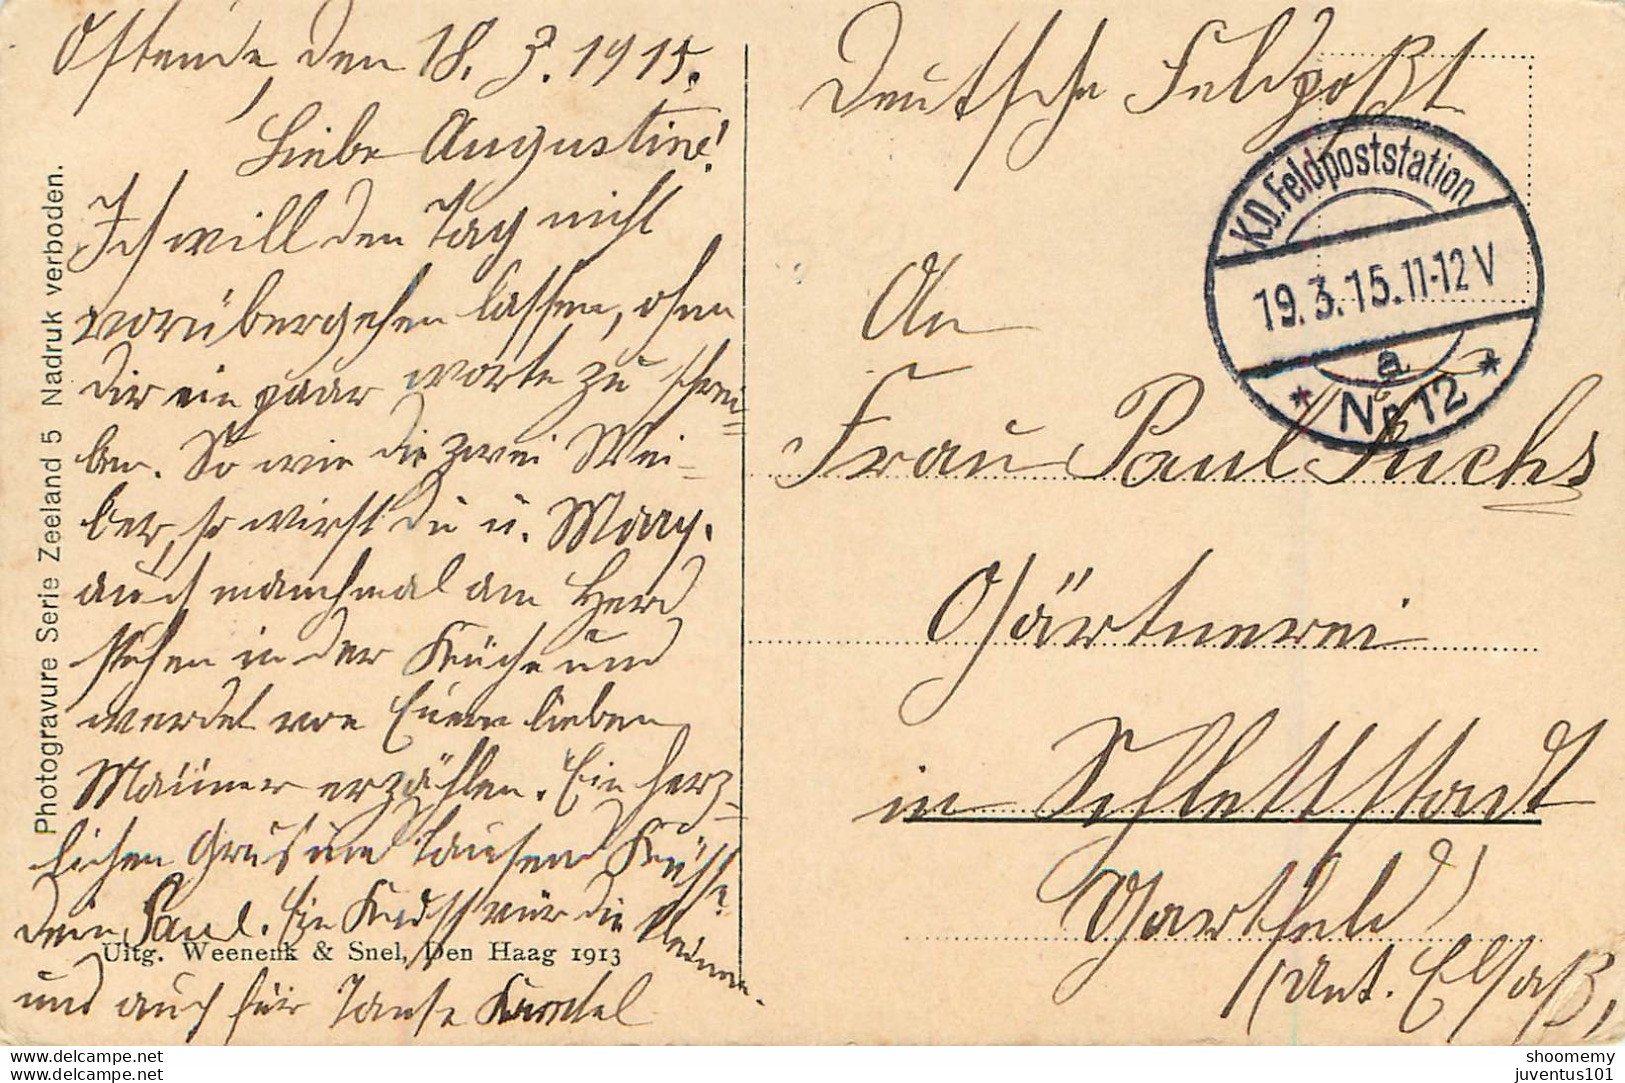 Ostende, den 18.3.1915.
Liebe Augustine!
Ich will den Tag nicht
vorübergehen lassen, ohne
dir ein paar worte zu schrei=
ben. So wie die zwei Wei=
ber, so wirst du u. Marg.
auch manchmal am Herd
stehen in der Küche und
werdet von Euern lieben
Männer erzählen. Ein herz=
lichen Grus und tausend Küsse
dein Paul. Ein für die kleine
und auch für Tante
Photogravure Serie Zeeland 5 Nadruk verboden.
Uitg. Weenenk & Snel, Den Haag 1913
Deutsche Feldpoßt
K.D.Feldpoststation
19.3.15.11-12V
a
* Nr 12 *
An
Frau Paul Fuchs
Gärtnerei
in Schlettstadt
Gartfeld
(Unt. Elsaß)
delcampe.net
shoomemy
juventus101